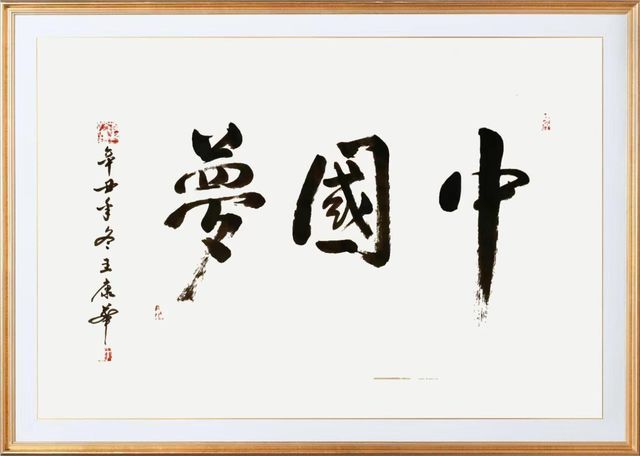 中國夢
辛丑年冬王康華